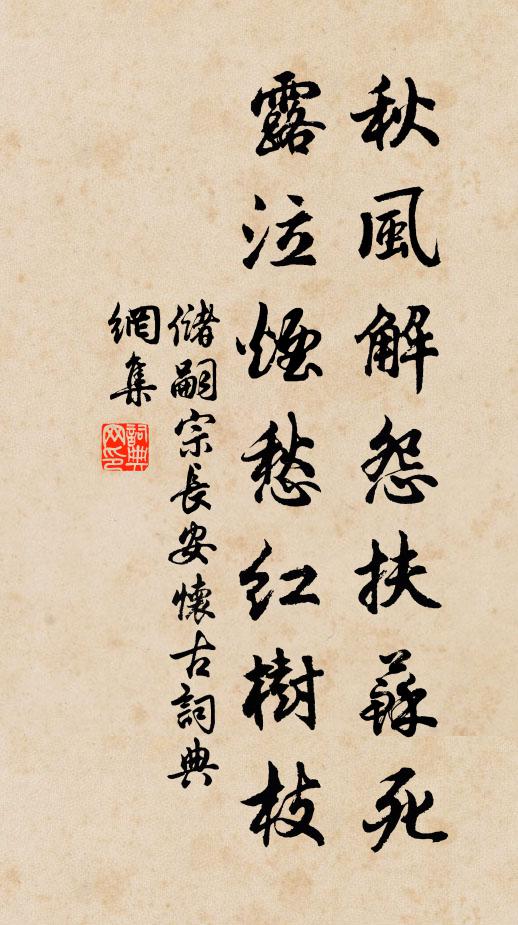 秋風解怨扶蘇死
露泣煙愁紅樹枝
儲嗣宗長安懷古詞典
網集
詞典
网印